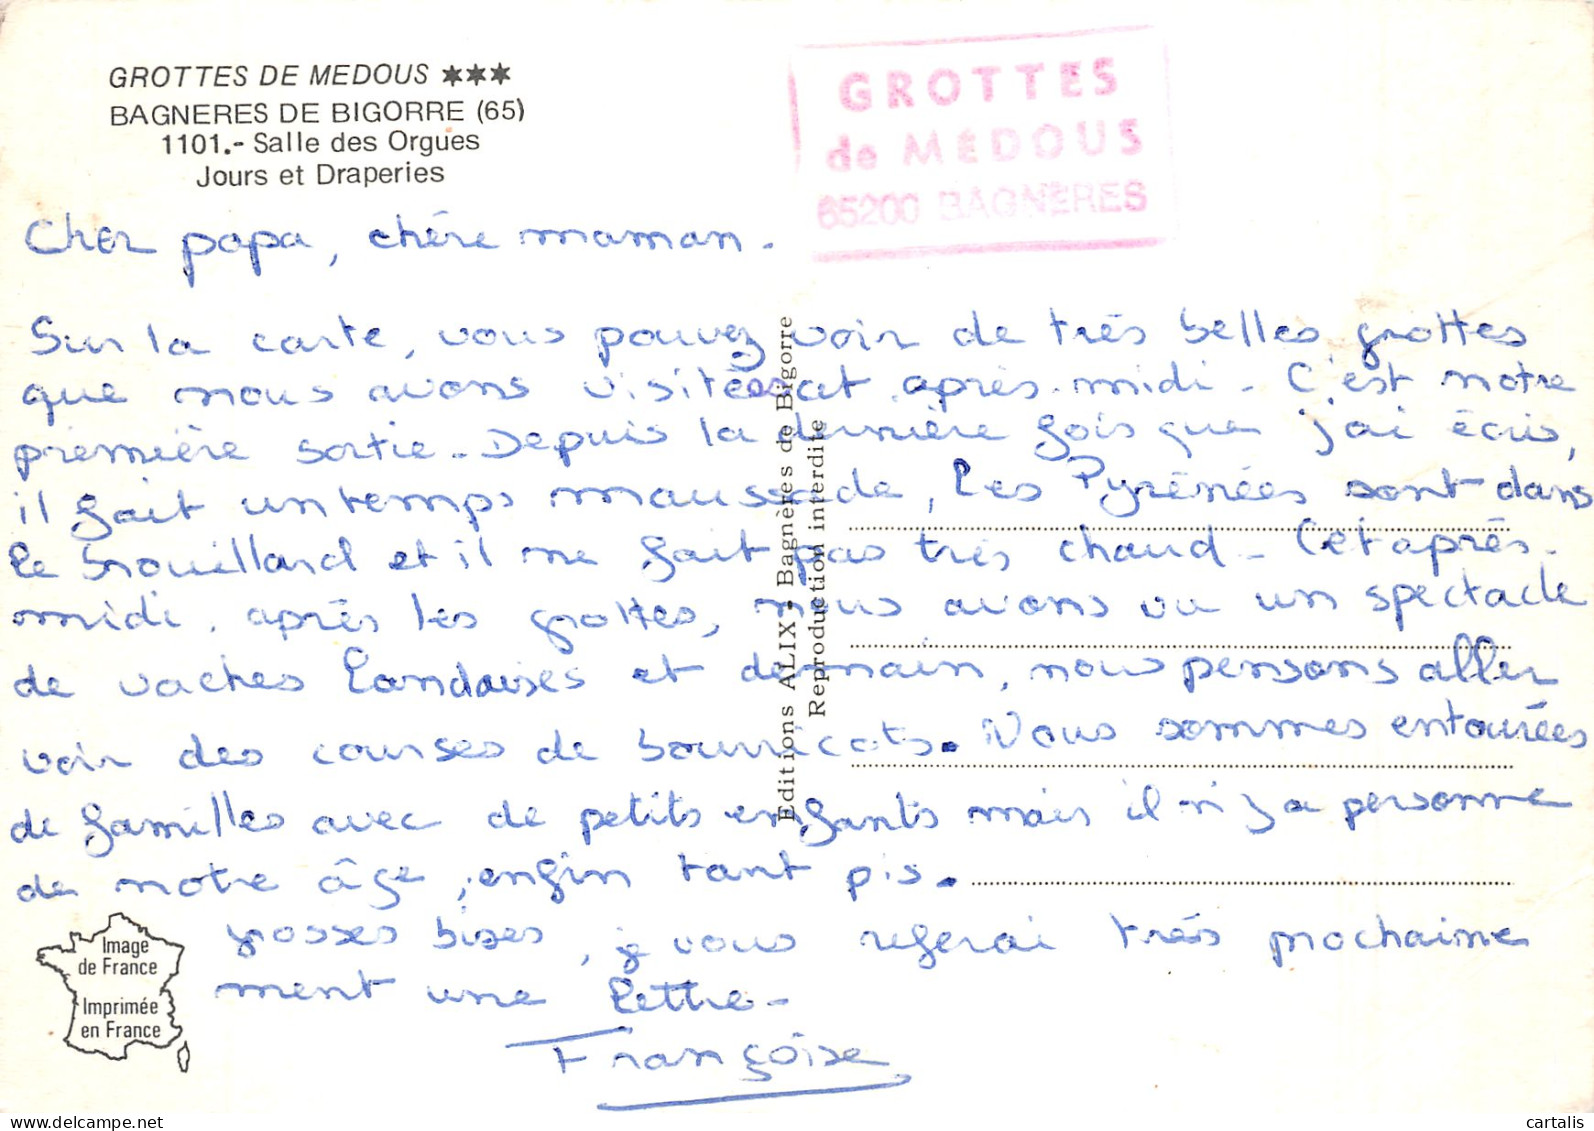 GROTTES DE MEDOUS ✶✶✶
BAGNERES DE BIGORRE (65)
1101.- Salle des Orgues
Jours et Draperies
GROTTES
de MÉDOUS
65200 BAGNERES
Cher papa, chère maman.
Sur la carte, vous pouvez voir de très belles grottes
que nous avons visitées cet après-midi. C'est notre
première sortie. Depuis la dernière fois que j'ai écris,
il fait un temps maussade, les Pyrénées sont dans
le brouillard et il ne fait pas très chaud. Cet après-
midi, après les grottes, nous avons vu un spectacle
de vaches landaises et demain, nous pensons aller
voir des courses de bourricots. Nous sommes entourées
de familles avec de petits enfants mais il n'y a personne
de notre âge, enfin tant pis.
grosses bises, je vous referai très prochaine
ment une lettre.
Françoise
Editions ALIX - Bagnères de Bigorre
Reproduction interdite
Image
de France
Imprimée
en France
delcampe.net
cartalis